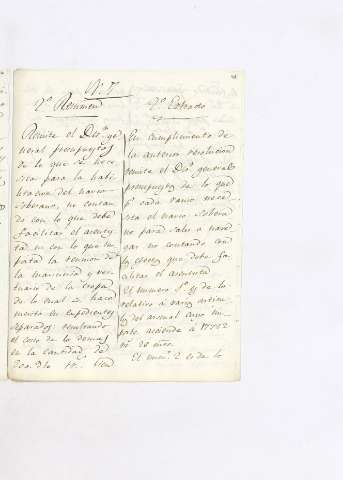 N. 7
2º Resumen
Remite el Dor. ge
neral presupuestos
de lo que se nece
sita para la habi
litacion del navio
Soberano, no contan
do con lo que debe
facilitar el asentis
ta ni con lo que im
porta la reunion de
la marineria y ves
tuario de la tropa
de lo cual se hace
merito en expedientes
separados, resultando
el costo de lo demas
en la cantidad de
2º Extracto
En cumplimiento de
la anterior resolucion
remite el Dor. general
presupuestos de lo que
pr. cada ramo nece
sita el navio Sobera
no para salir a nave
gar no contando con
los efectos que debe fa
cilitar el asentista.
El numero 1º es de lo
relativo á varios articu
los del arsenal cuyo im
porte asciende á 17712
rs. 20 mrs.
El num. 2 es de lo